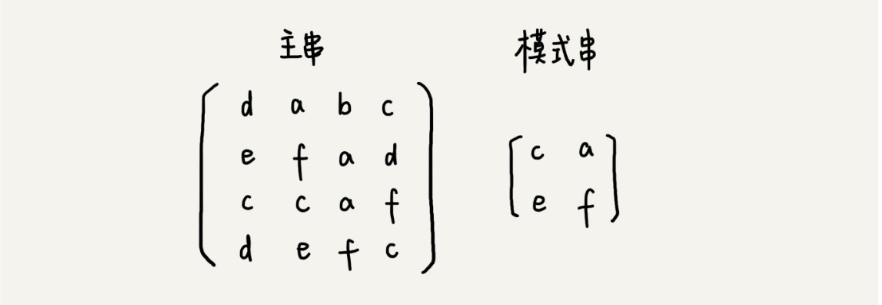 主串 模式串
d a b c
e f a d
c c a f
d e f c
c a
e f